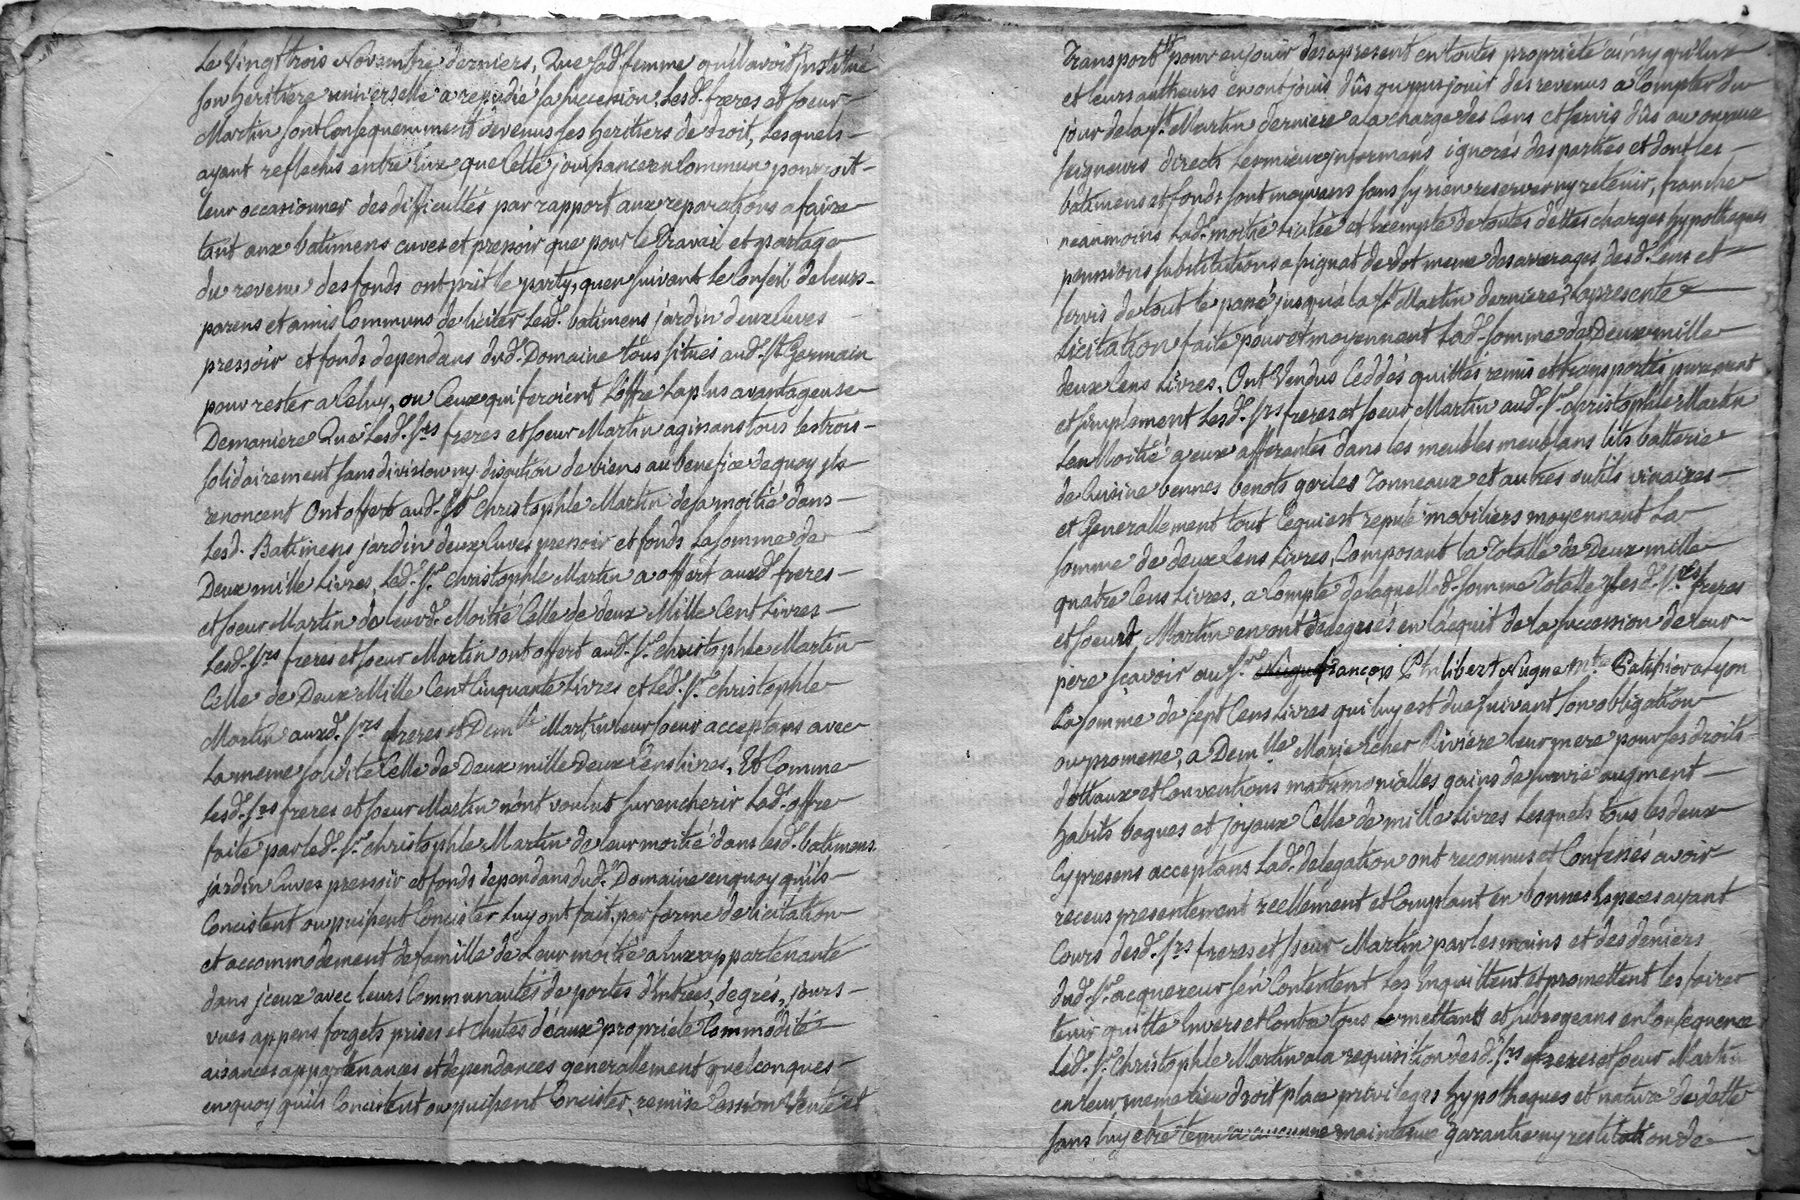 Le Vingt trois Novembre derniers, Que sad. femme qu'il avoit institué
son heritiere universelle a repudié sa succession. Lesd. freres et soeur
Martin sont Consequemment devenus ses heritiers de droit, Lesquels
ayant reflechis entre Eux que Cette jouissance en Commun pourroit
leur occasionner des difficultés par rapport aux reparations a faire
tant aux batimens cuves et pressoir que pour le travail et partage
du revenu des fonds ont prit le party, qu'en suivant Le Conseil de leurs
parens et amis Communs de liciter Lesd. batimens jardin deux Cuves
pressoir et fonds dependans dud. Domaine tous situés aud. St Germain
pour rester a Celuy, ou Ceux qui feroient L'offre La plus avantageuse
De maniere Que Lesd. Srs freres et soeur Martin agissans tous les trois
solidairement sans division ny discution de biens au benefice de quoy ils
renoncent Ont offert aud. Sr Christophle Martin de sa moitié dans
Lesd. Batimens jardin deux Cuves pressoir et fonds La somme de
Deux mille Livres, Led. Sr Christophle Martin a offert auxd. freres
et soeur Martin de leurd. Moitié Celle de deux Mille Cent Livres
Lesd. Srs freres et soeur Martin ont offert aud. Sr Christophle Martin
Celle de Deux Mille Cent Cinquante Livres et Led. Sr Christophle
Martin auxd. Srs freres et Demlle Martin leur soeur acceptans avec
La meme solidité Celle de Deux mille Deux Cens Livres, Et Comme
Lesd. Srs freres et soeur Martin n'ont voulut surencherir Lad. offre
faite par led. Sr Christophle Martin de leur moitié dans lesd. batimens
jardin Cuves pressoir et fonds dependans dud. Domaine en quoy qu'ils
Concistent ou puissent Concister Luy ont fait, par forme de licitation
et accommodement de famille de Leur moitié a Eux appartenante
dans jceux avec leurs Communautés de portes d'Entrées, degrés, jours
vues appens forgets prises et Chutes d'eaux proprieté Commodité
aisances appartenances et dependances generallement quelconques
en quoy qu'ils Concistent ou puissent Concister, remise Cession Vente et
Transport pour en jouir des apresent en toutes proprieté ainsy qu'Eux
et leurs autheurs en ont jouis dûs ou pus jouir des revenus a Compter du
jour de la St Martin derniere a la charge des Cens et servis dûs au ou aux
seigneurs directs Les mieux informans ignorés des parties et dont les
batimens et fonds sont mouvans sans sy rien reserver ny retenir, franche
neanmoins Lad. moitié Licitée et Exempte de toutes dettes charges hypotheques
pensions substitutions apignat de dot meme des arrerages desd. Cens et
servis de tout le passé jusqu'à la St Martin derniere, La presente
Licitation faite pour et moyennant Lad. somme de Deux mille
deux Cens Livres, Ont Vendus Ceddés quittés remis et transportés purement
et simplement Lesd. Srs freres et soeur Martin aud. Sr Christophle Martin
Leur Moitié a eux afferante dans les meubles meublans lits batterie
de Cuisine bennes benots gerles Tonneaux et autres outils vinaires
et Generallement tout Ce qui est reputé mobiliers moyennant La
somme de deux Cens Livres, Composant La Totalle de Deux mille
quatre Cens Livres, a Compte de laquelle d. somme Totalle Lesd. Srs freres
et soeurs Martin en ont delegués en l'acquit de la succession de leur
pere sçavoir au Sr François Philibert Nugue Mtre Patissier a Lyon
La somme de sept Cens Livres qui luy est due suivant son obligation
ou promesse, a Demlle Marie Rivière leur mere pour ses droits
dottaux et Conventions matrimonialles gains de survie augment
habits bagues et joyaux Celle de mille Livres Lesquels tous les deux
Cy presens acceptans Lad. delegation ont reconnus et Confessés avoir
receus presentement reellement et Comptant en bonnes Especes ayant
Cours desd. Srs freres et soeur Martin par les mains et des deniers
dud. Sr acquereur s'en Contentent Les En quittent et promettent les faire
tenir quitte Envers et Contre tous mettants et subrogeans en Consequence
Led. Sr Christophle Martin a la requisition desd. Srs freres et soeur Martin
en leur meme lieu droit place privileges hypotheques et nature de dette
sans luy etre tenu a aucune maintenue garantie ny restitution de